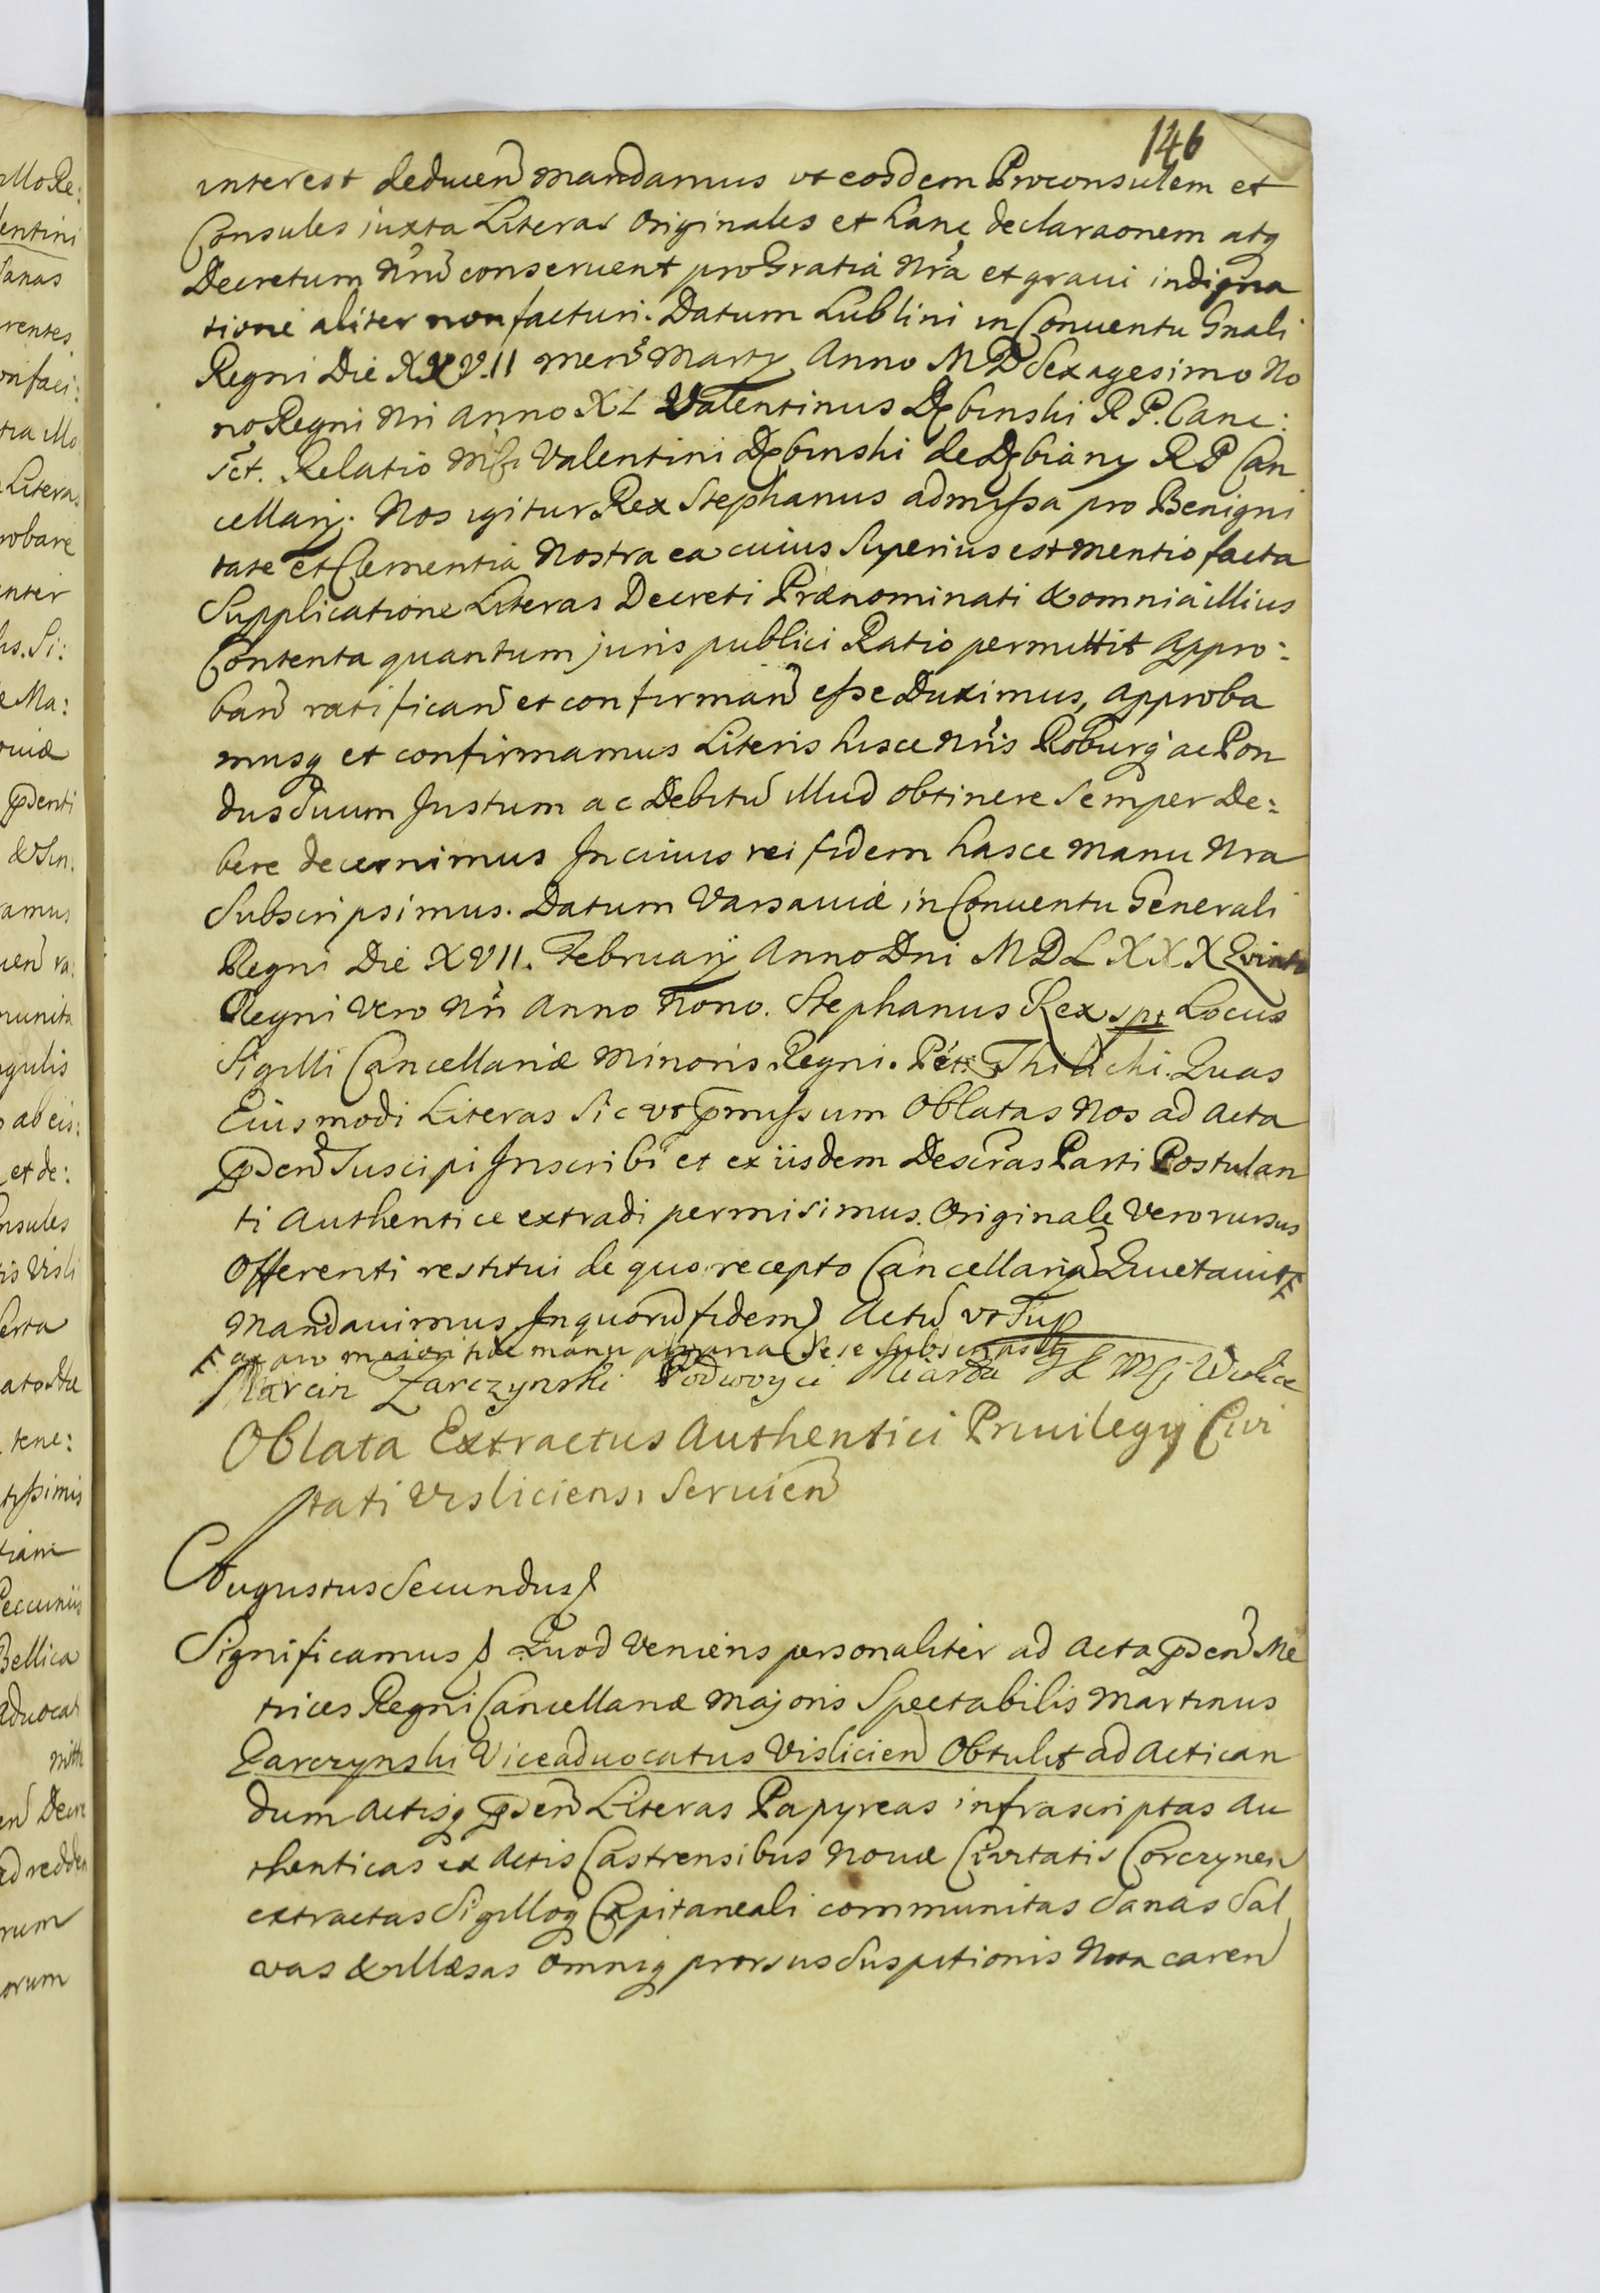 146
interest deducen mandamus vt eosdem Proconsulem et
Consules iuxta Literas Originales et hanc declaraonem atq
Decretum Nrm conseruent pro Gratia Nra et graui indigna
tione aliter non facturi. Datum Lublini in Conuentu Gnali
Regni Die XXVII mens Martij Anno MD Sexagesimo No
no Regni Nri Anno XL Valentinus Dębinski R P. Canc:
sst. Relatio Valentini Dębinski de Dębiany R P Can
cellarij. Nos igitur Rex Stephanus admissa pro Benigni
tate et Clementia Nostra ea cuius Superius est mentio facta
Supplicatione Literas Decreti Prænominati & omnia illius
Contenta quantum juris publici Ratio permittit appro:
ban ratifican et confirman esse Duximus, approba
musq et confirmamus Literis hisce Nris Roburq ac Pon
dus suum Justum ac Debitu illud obtinere semper De:
bere decernimus In cuius rei fidem hasce manu Nra
Subscripsimus. Datum Varsauiæ in Conuentu Generali
Regni Die XVII. Februarij Anno Dni MDLXXX Quinto
Regni Vero Nri Anno Nono. Stephanus Rex Locus
Sigilli Cancellariæ Minoris Regni. Quas
Eiusmodi Literas Sic vt pmissum Oblatas Nos ad Acta
pden Suscipi Inscribi et ex iisdem Descras Parti Postulan
ti Authentice extradi permisimus. Originale Vero rursus
Offerenti restitui de quo recepto Cancellaria Quietauit
Mandauimus In quoru fidem Actu vt Sup
manu Sese Subscripsit
Marcin Zarczynski Podwoyci Miasta
Oblata Extractus Authentici Priuilegij Ciui
tati Visliciensi Seruien
Augustus Secundus
Significamus Quod Veniens personaliter ad Acta pden Me
trices Regni Cancellariæ Majoris Spectabilis Martinus
Zarczynski Viceaduocatus Vislicien Obtulit ad Actican
dum Actisq pden Literas Papyreas infrascriptas Au
thenticas ex Actis Castrensibus Nouæ Ciuitatis Corczynen
extractas Sigilloq Capitaneali communitas Sanas Sal
uas & illæsas Omniq prorsus Suspitionis Nota caren